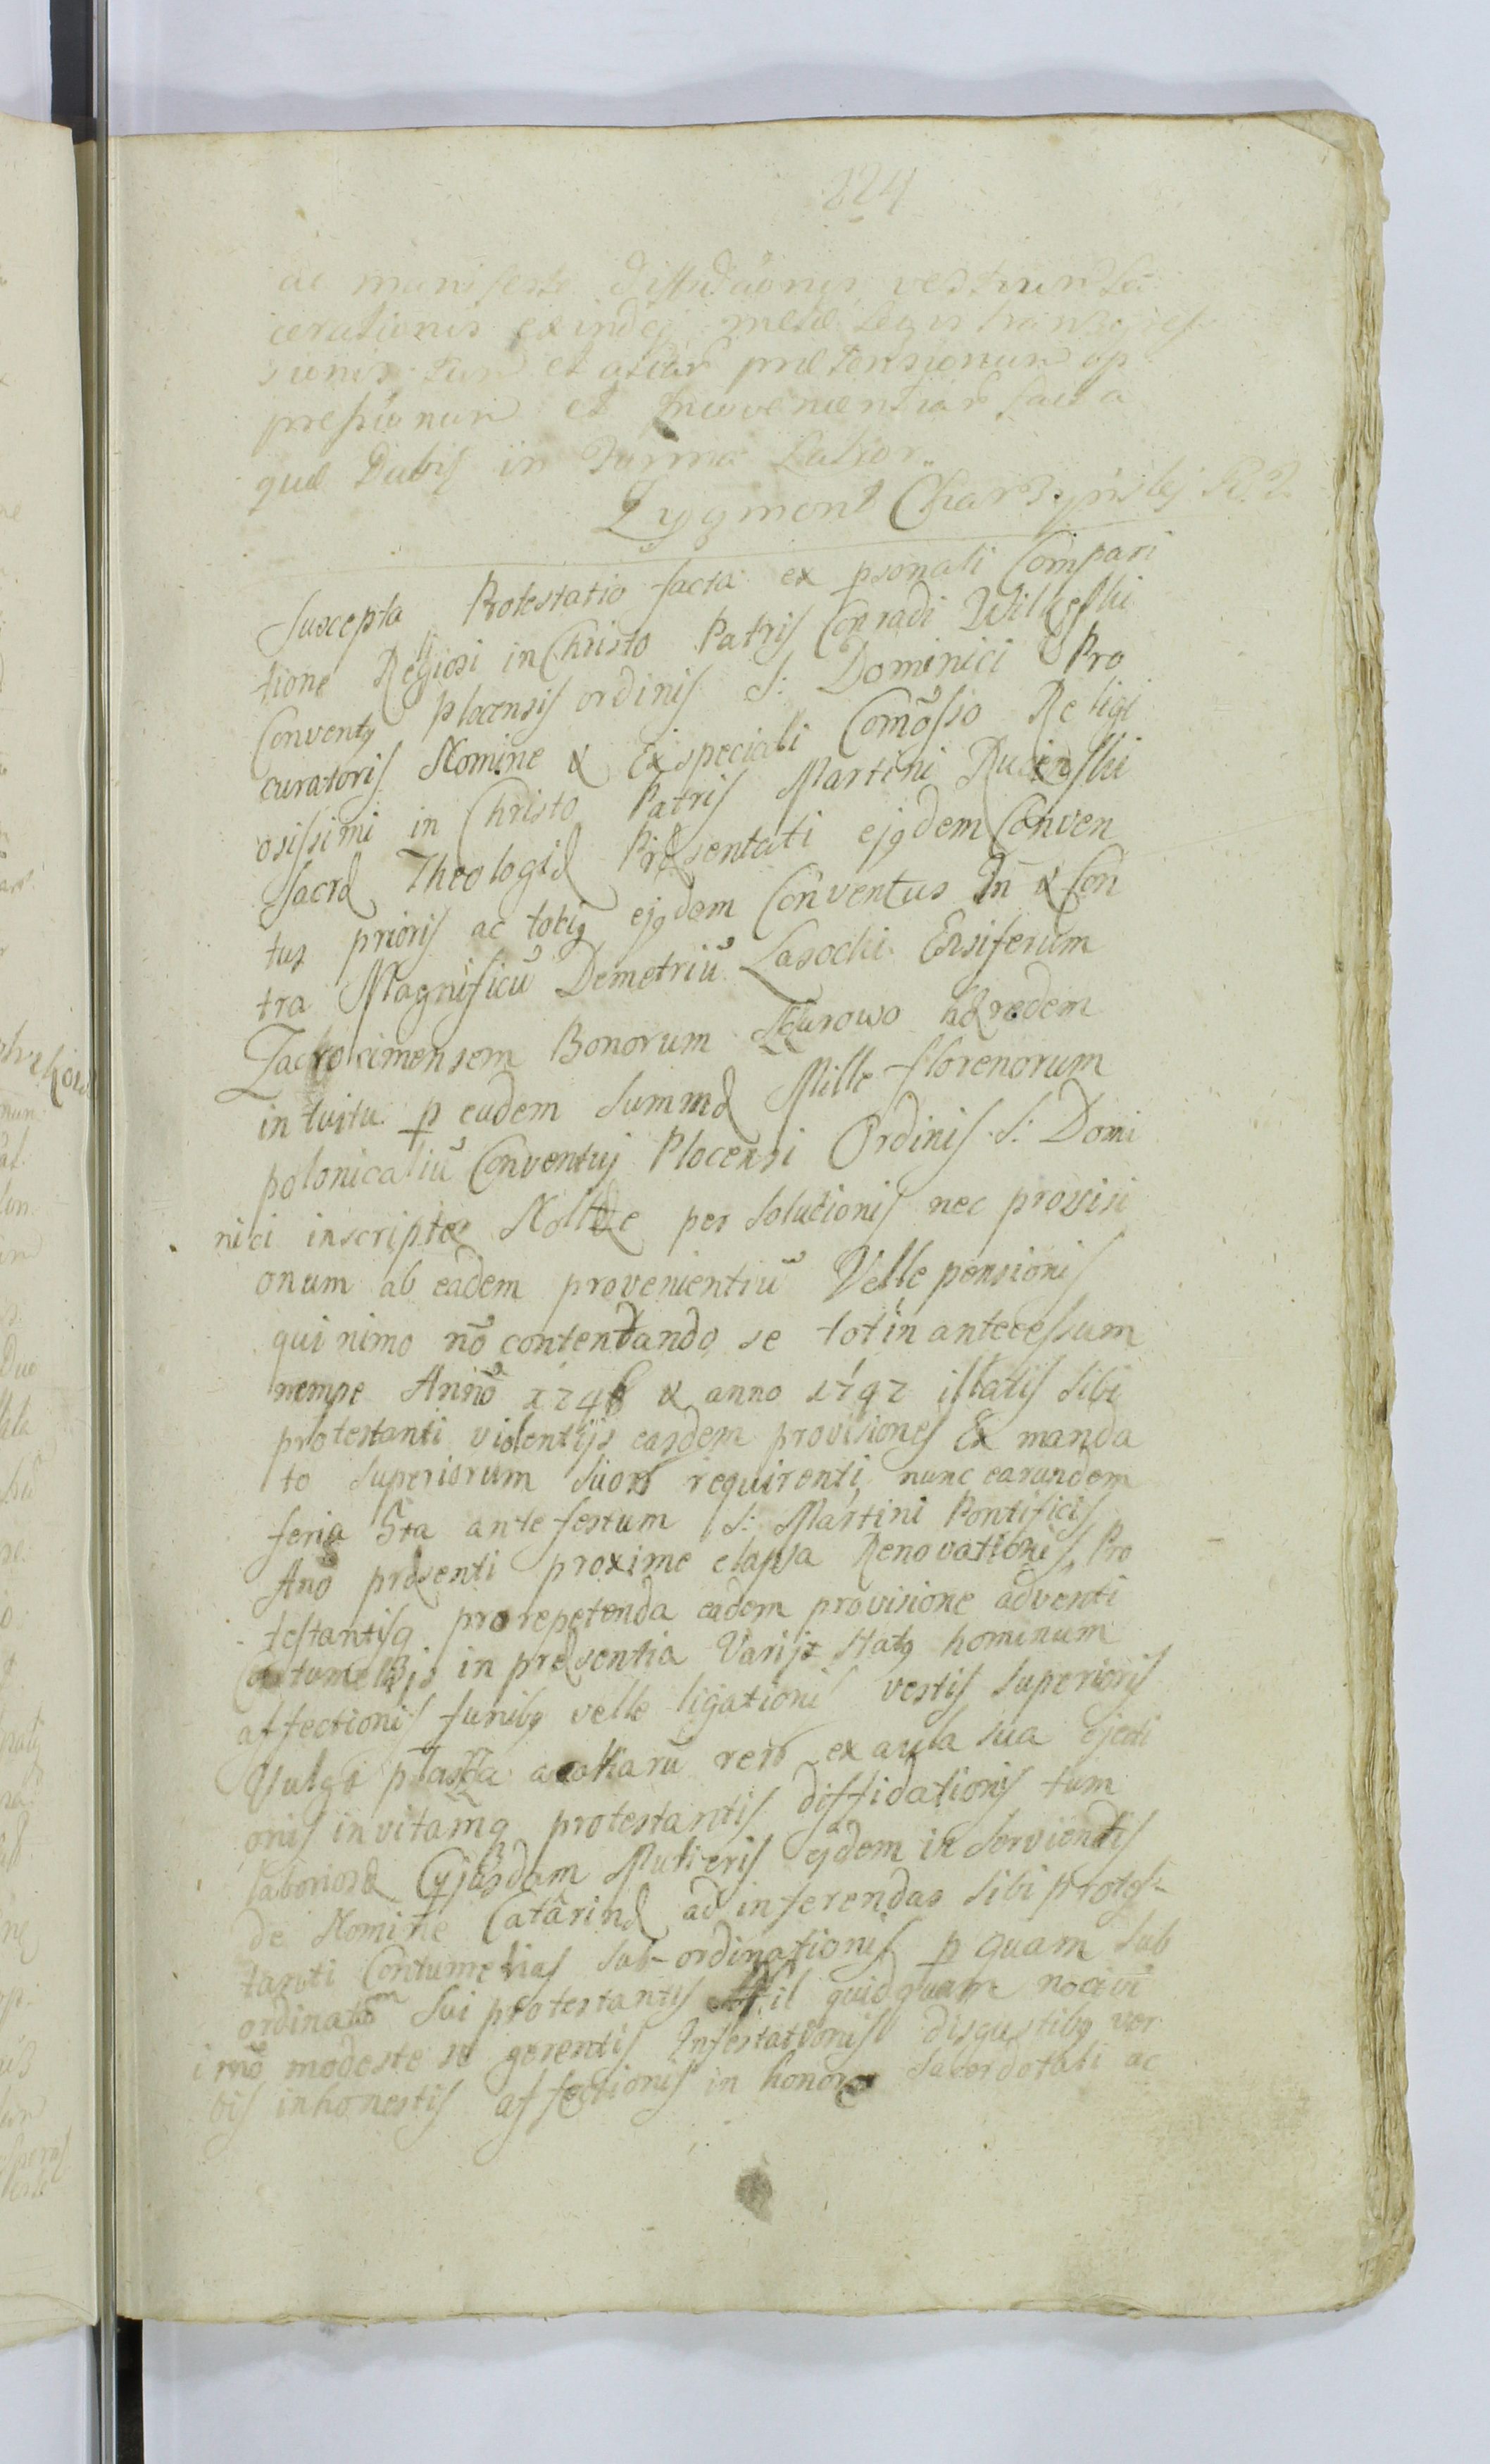 124
ac manifestæ diffidãonis vestium la
cerationis exindeq; metæ Legis transgres
sionis tum et aliar̃ prætensionum op
pressionum et Inconvenientiar̃ facta
quæ Dabis in Forma Latior.
Zygmont
Suscepta Protestatio facta ex psonali Compari
tione Regiosi in Christo Patris Conradi Wilkefski
Conventq plocensis ordinis S: Dominici Pro
curatoris Nomine & Ex speciali Comõsso Religi
osissimi in Christo Patris Martini Rucienski
Sacræ Theologiæ Præsentati ejqdem Conven
tus prioris ac totiq ejqdem Conventus In & Con
tra Magnificũ Demetriũ Lasocki Ensiferum
Zacrocimensem Bonorum hæredem
intuitu p eadem Summæ Mille florenorum
polonicaliũ Conventuj Plocensi Ordinis S: Domi
nici inscriptæ Noltæ per Solutionis nec provisi
onum ab eadem provenientiũ Velle pensionis
qui nimo nõ contentando se tot in antecessum
nempe Anno 1746 & anno 1747 illatis Sibi
protestanti violentijs easdem provisiones Ex manda
to Superiorum Suor̃ requirenti, nunc earundem
feria 5ta ante festum S: Martini Pontificis
Año præsenti proxime elapsa Renovationis, Pro
testantisq pro repetenda eadem provisione adventi
Contumelijs in præsentia Varijs Statq hominum
affectionis funibq velle ligationis vestis Superioris
Vulgo płaszcza aliarũ rer̃ ex aula sua ejecti
onis in vitamq protestantis diffidationis tum
laboriosæ Cujusdam Mulieris ejdem in Serviendis
de Nomine Catarinæ ad inferendas Sibi protes-
tanti Contumelias Sub-ordinationis p quam Sub
ordinatam Sui protestantis Nil quidquam nocivi
imõ modeste se gerentis Infestationis disgustibq ver
bis inhonestis affectionis in honore Sacerdotali ac